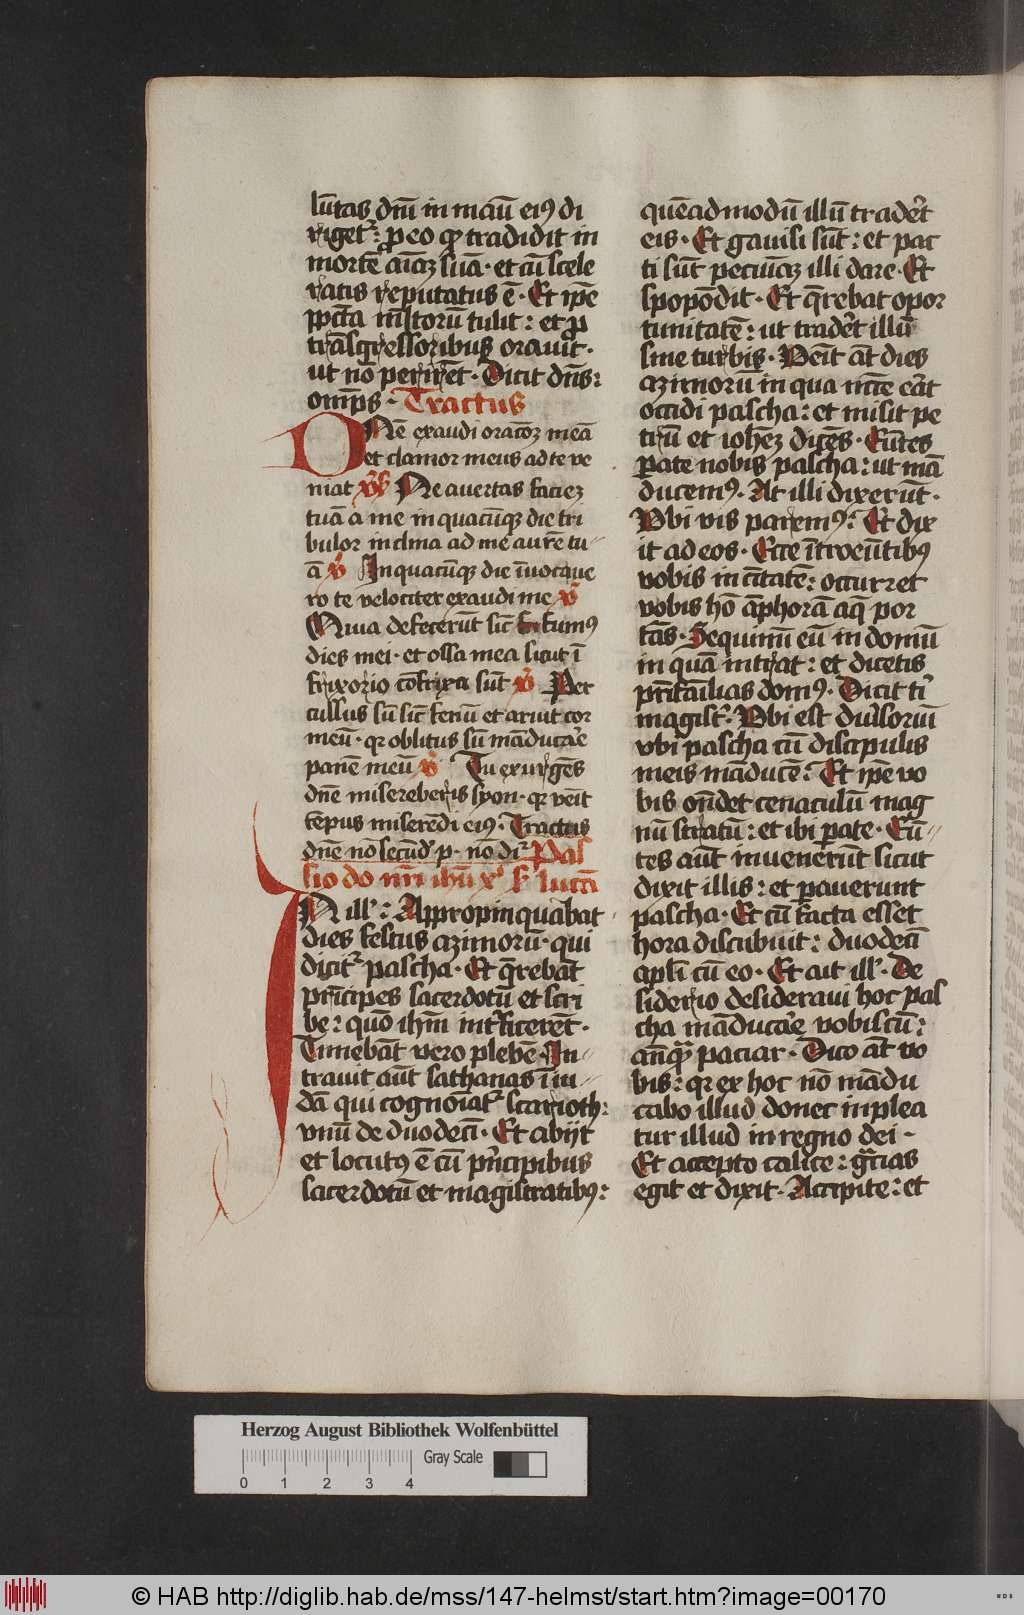 lūtas dn̄i in manū ei9 di
riget᷑: ꝓ eo qꝫ tradidit in
mortē aīaꝫ suā· et cū scele
ratis reputatus ē· Et ip̄e
pct̄a ml̄torū tulit: et ꝓ
trāsgressoribus orauit·
ut nō perirēt· Dicit dn̄s:
om̄ps· Tractus
DNē exaudi oracōꝫ meā
et clamor meus ad te ve
niat v̄s Ne auertas faciēꝫ
tuā a me in quacūqꝫ die tri
bulor inclina ad me aurē tu
ā v̄ In quacūqꝫ die īuocaue
ro te velociter exaudi me v̄
Quia defecerūt sic̄ fumus
dies mei· et ossa mea sicut ī
frixorio cōfrixa sūt v̄ Per
cussus sū sic̄ fenū et aruit cor
meū· qr oblitus sū māducar̄e
panē meū v̄ Tu exurgēs
dn̄e misereberis syon· qr ven̄it
tēpus miserēdi ei9· Tractus
dn̄e nō secūd̄ p· no di᷑ Pas
sio do nr̄i ihū xp̄i s̄ lucā
IN ill᷑: Appropinquabat
dies festus azimorū· qui
dicit᷑ pascha· Et q̄rebāt
prīcipes sacerdotū et scri
be: quō ihm̄ int᷑ficerēt·
Timebāt vero plebē· In
trauit aūt sathanas ī iu
dā qui cognōīat᷑ scarioth:
vnū de duodecī· Et abijt
et locut9 ē cū pn̄cipibus
sacerdotū et magistratib9:
quēadmodū illū trader̄t
eis· Et gauisi sūt: et pac
ti sūt pecuīaꝫ illi dare· Et
spopōdit· Et q̄rebat opor
tunitatē: ut trader̄t illū
sine turbis· Ven̄it āt dies
azimorū in qua nc̄c̄e eāt
occidi pascha: et misit pe
trū et ioh̄eꝫ dicēs· Eūtes
ꝑate nobis pascha: ut mā
ducem9· At illi dixerūt·
Vbi vis parem9: Et dix
it ad eos· Ecce ītroeūtib9
vobis in ciūtatē: occurret
vobis hō āphorā aq̄ por
tās· Sequim̄ī eū in domū
in quā intrat: et dicetis
prīfamilias dom9· Dicit ti᷑
magist᷑· Vbi est diu̇soriū
vbi pascha cū discipulis
meis māducē: Et ip̄e vo
bis ōn̄det cenaculū mag
nū stratū: et ibi ꝑate· Eū
tes aūt inuenerūt sicut
dixit illis: et ꝑauerunt
pascha· Et cū facta esset
hora discubuit: duodecī
apl̄i cū eo· Et ait ill᷑· De
siderio desideraui hoc pas
cha māducar̄e vobiscū:
ānqꝫ paciar· Dico āt vo
bis: qr ex hoc nō mādu
cabo illud donec inplea
tur illud in regno dei·
Et accepto calice: gr̄cias
egit et dixit· Accipite: et
Herzog August Bibliothek Wolfenbüttel
Gray Scale
0 1 2 3 4
© HAB http://diglib.hab.de/mss/147-helmst/start.htm?image=00170